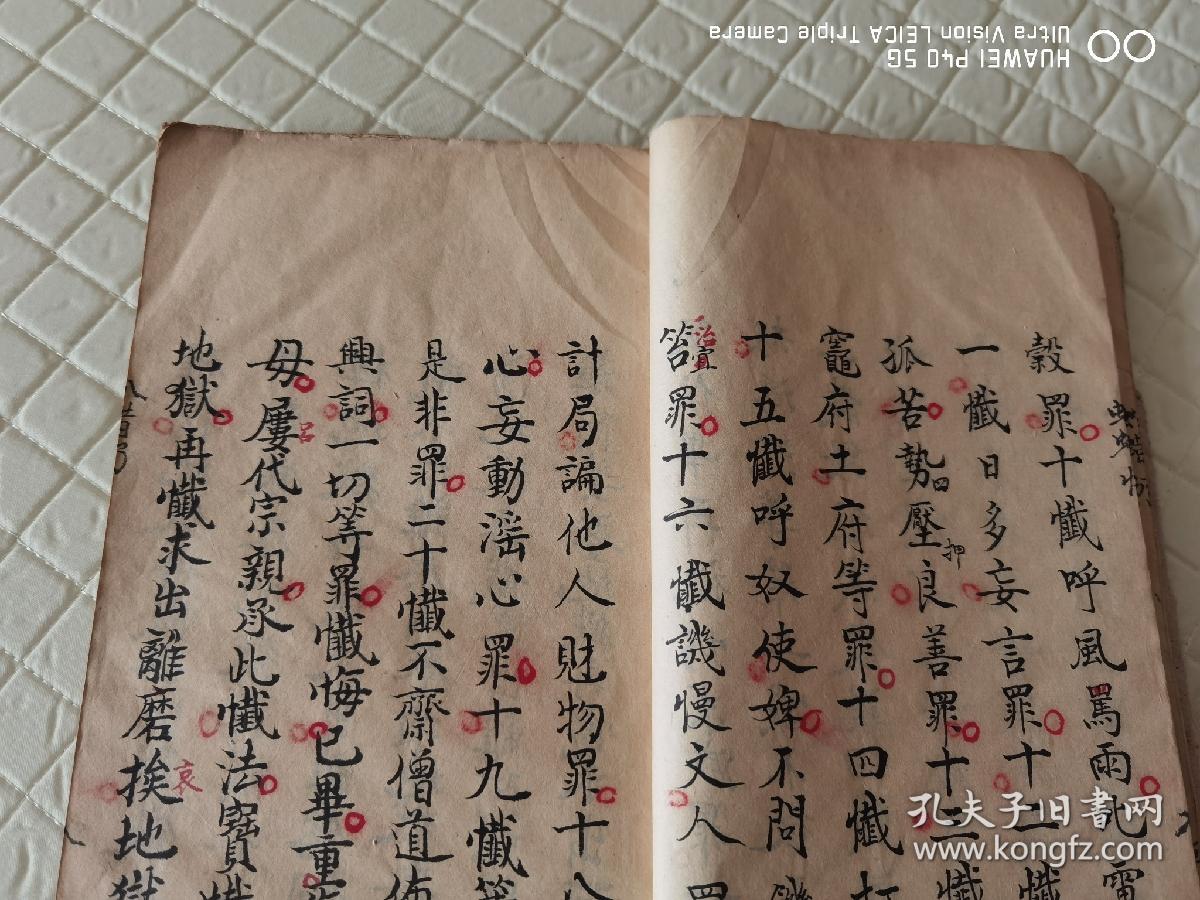 HUAWEI P40 5G
Ultra Vision LEICA Triple Camera
穀罪十懺呼風罵雨
一懺日多妄言罪十二懺
孤苦勢壓良善罪十三懺
押
竈府土府等罪十四懺打
十五懺呼奴使婢不問
笞罪十六懺譏慢文人
治
宜
計局謆他人財物罪十八
心妄動滛心罪十九懺
是非罪二十懺不齋僧道
興詞一切等罪懺悔已畢重
母屢代宗親承此懺法寶
呂
地獄再懺求出離磨挨地獄
哀
孔夫子旧书网
www.kongfz.com